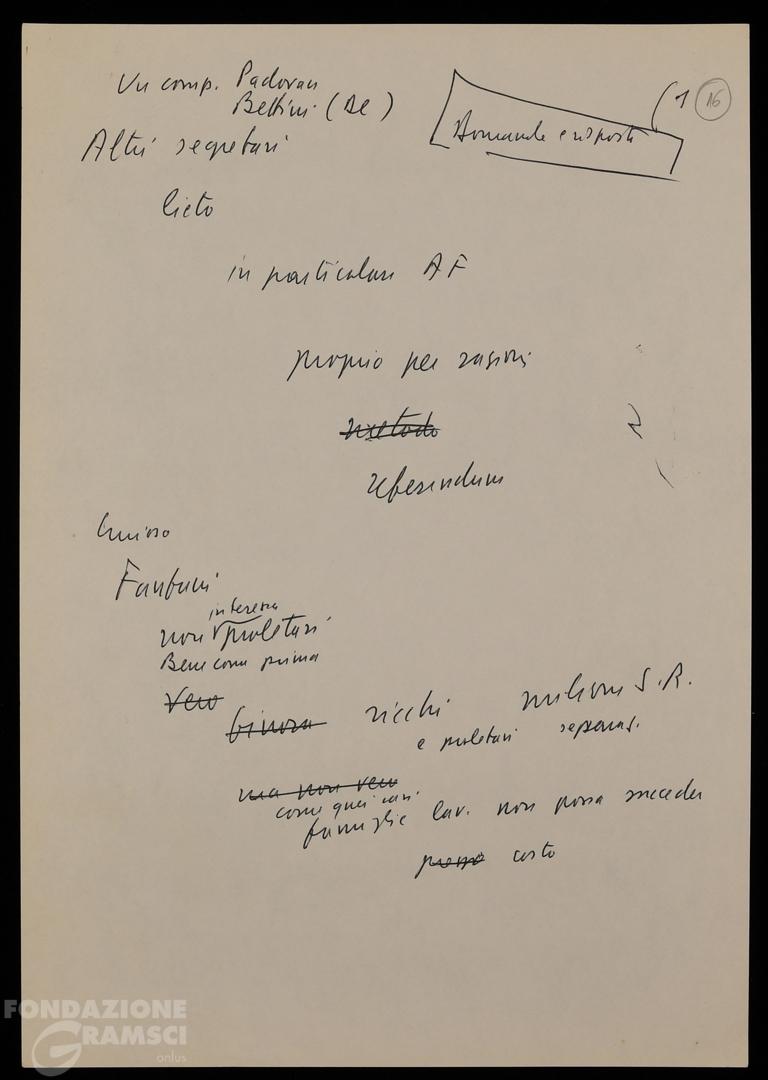 Un comp. Padovan
Bettini (Be)
(1 16
Domande e risposte
Altri segretari
lieto
in particolare AF
proprio per ragioni
metodo
referendum
Curioso
Fanfani
interessa
non proletari
Bene come prima
vero
finora ricchi milioni S.R.
e proletari separaz.
ma non vero
come quei casi
famiglie lav. non possa succeder
prezzo costo
FONDAZIONE
GRAMSCI
onlus